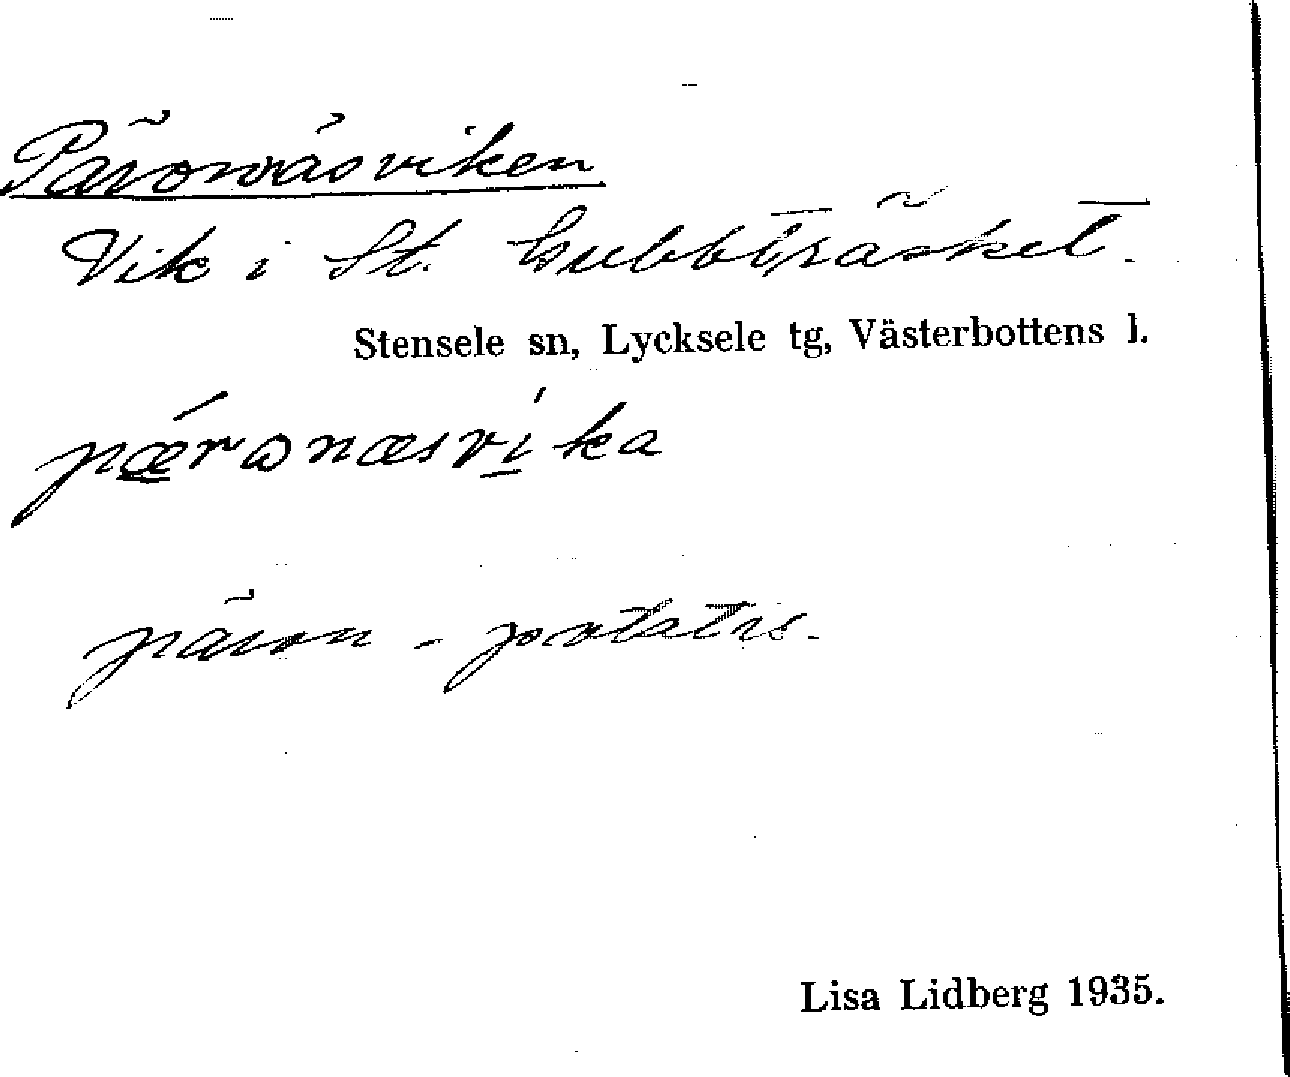 Päronnäsviken
Vik i St. Gubbträsket.
Stensele sn, Lycksele tg, Västerbottens l.
pǽ̲rɷnæsvi̲̍ka
päron - potatis.
Lisa Lidberg 1935.